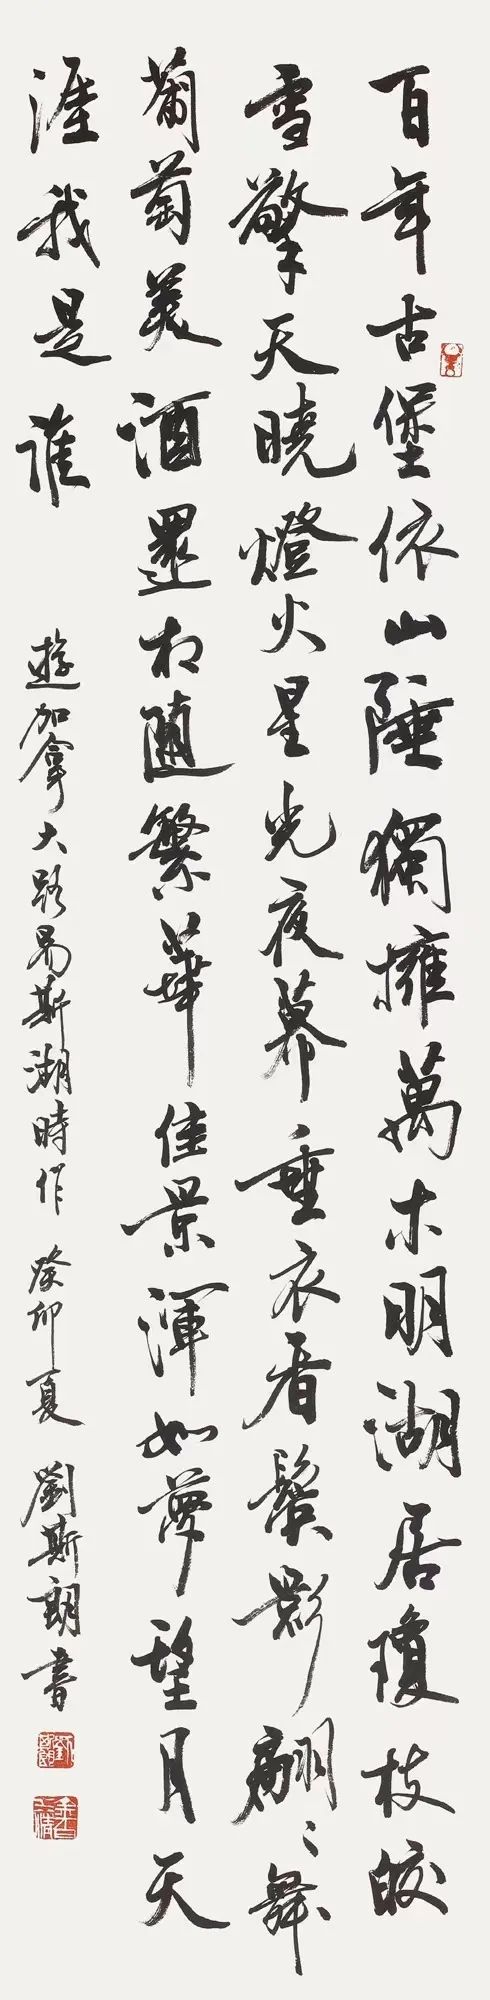 百年古堡依山陲獨擁萬木明湖居瓊枝皎
雪擎天曉燈火星光夜幕垂衣看鬢影翩〻舞
葡萄美酒還相隨繁華佳景渾如夢望月天
涯我是誰
遊加拿大路易斯湖時作 癸卯夏 劉斯朗書